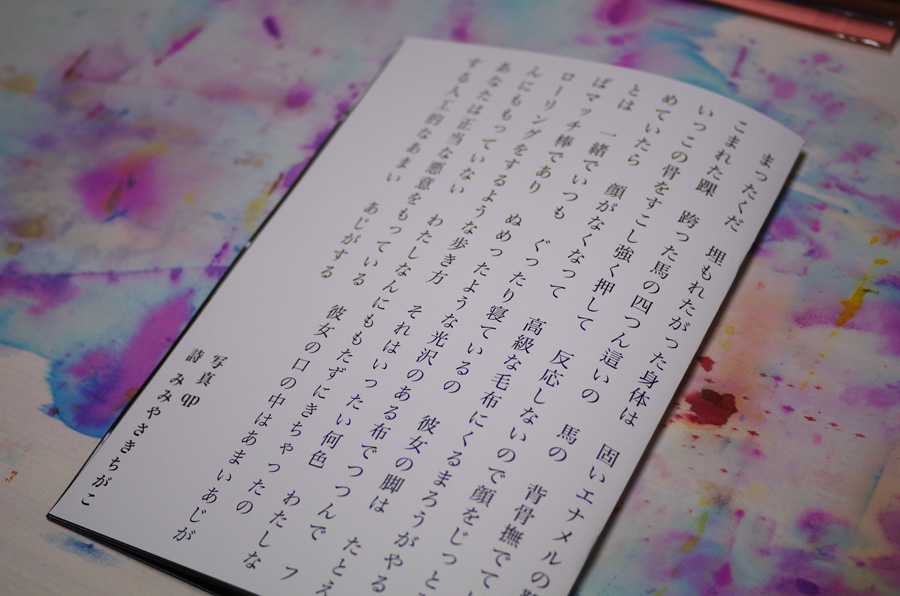 まったくだ　埋もれたがった身体は　固いエナメルの
こまれた踝　跨った馬の四つん這いの　馬の　背骨撫でて
いつこの骨をすこし強く押して　反応しないので顔をじっと
めていたら　顔がなくなって　高級な毛布にくるまろうがやる
とは　一緒でいつも　ぐったり寝ているの　彼女の脚は　たとえ
ばマッチ棒であり　ぬめったような光沢のある布でつつんで　フ
ローリングをするような歩き方　それはいったい何色　わたしな
んにももっていない　わたしなんにももたずにきちゃったの
あなたは正当な悪意をもっている　彼女の口の中はあまいあじが
する人工的なあまい　あじがする
写真 qp
詩 みみやさきちがこ